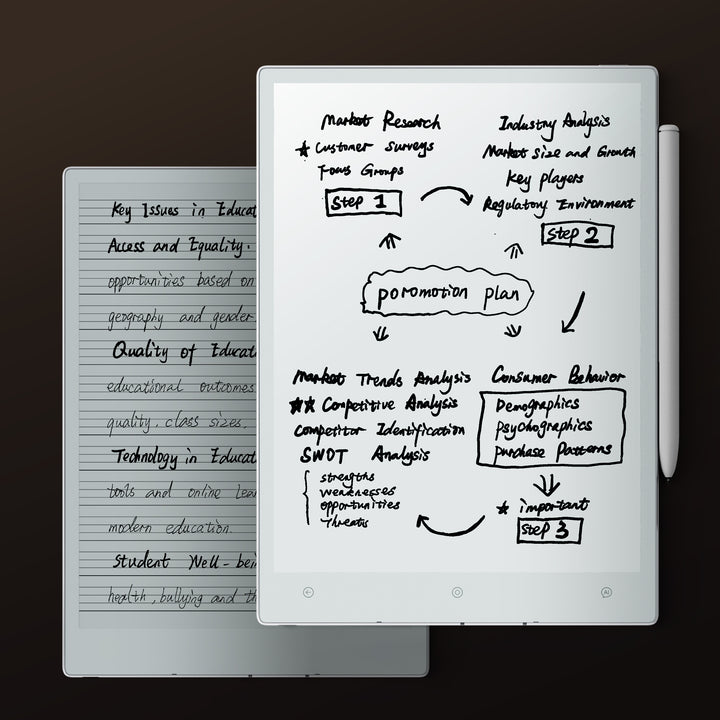 Market Research
★ Customer surveys
Focus Groups
Step 1
Industry Analysis
Market size and Growth
Key players
Regulatory Environment
Step 2
poromotion plan
Market Trends Analysis
★★ Conpetitive Analysis
Competitor Identification
SWOT Analysis
strengths
weaknesses
opportunities
Threats
Consumer Behavior
Demographics
Psychographics
purchase Patterns
★ important
Step 3
AI
Key Issues in Educat
Access and Equality.
opportunities based on
geography and gender.
Quality of Educat
educational outcomes
quality, class sizes.
Technology in Educat
tools and online lear
modern education.
Student Well-bei
health, bullying and th